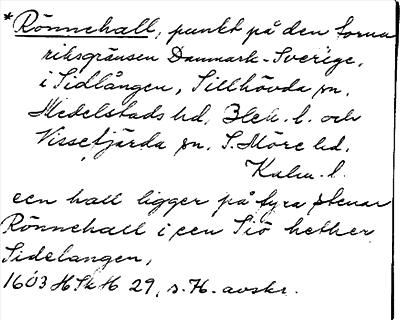 *Rönnehall, punkt på den forna
riksgränsen Danmark-Sverige,
i Sidlången, Sillhövda sn,
Medelstads hd, Blek. l. och
Vissefjärda sn, S. Möre hd,
Kalm. l.
een hall ligger på fyra stenar
Rönnehall i een Siö hether
Sidelangen,
1603 HSkH 29, s. 76. avskr.